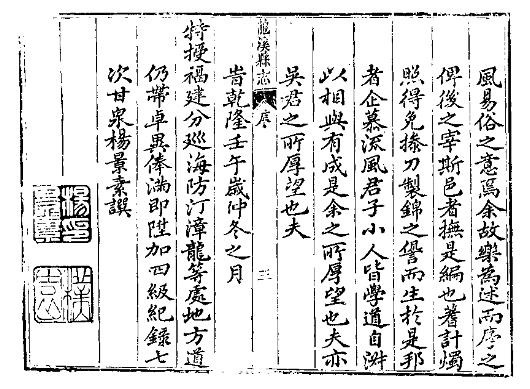 風易俗之意焉余故樂為述而序之
俾後之宰斯邑者撫是編也著計燭
照得免操刀製錦之譽而生於是邦
者企慕流風君子小人皆學道自淑
以相與有成是余之所厚望也夫亦
吳君之所厚望也夫
旹乾隆壬午歲仲冬之月
龍溪縣志 序 三
特授福建分巡海防汀漳龍等處地方道
仍帶卓異俸滿即陞加四級紀錄七
次甘泉楊景素譔
楊印景素
樸園